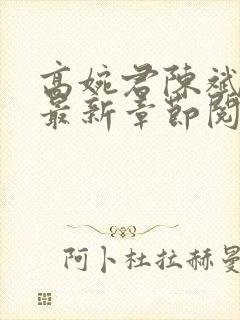 高婉君陈斌
最新章节阅
阿卜杜拉赫曼